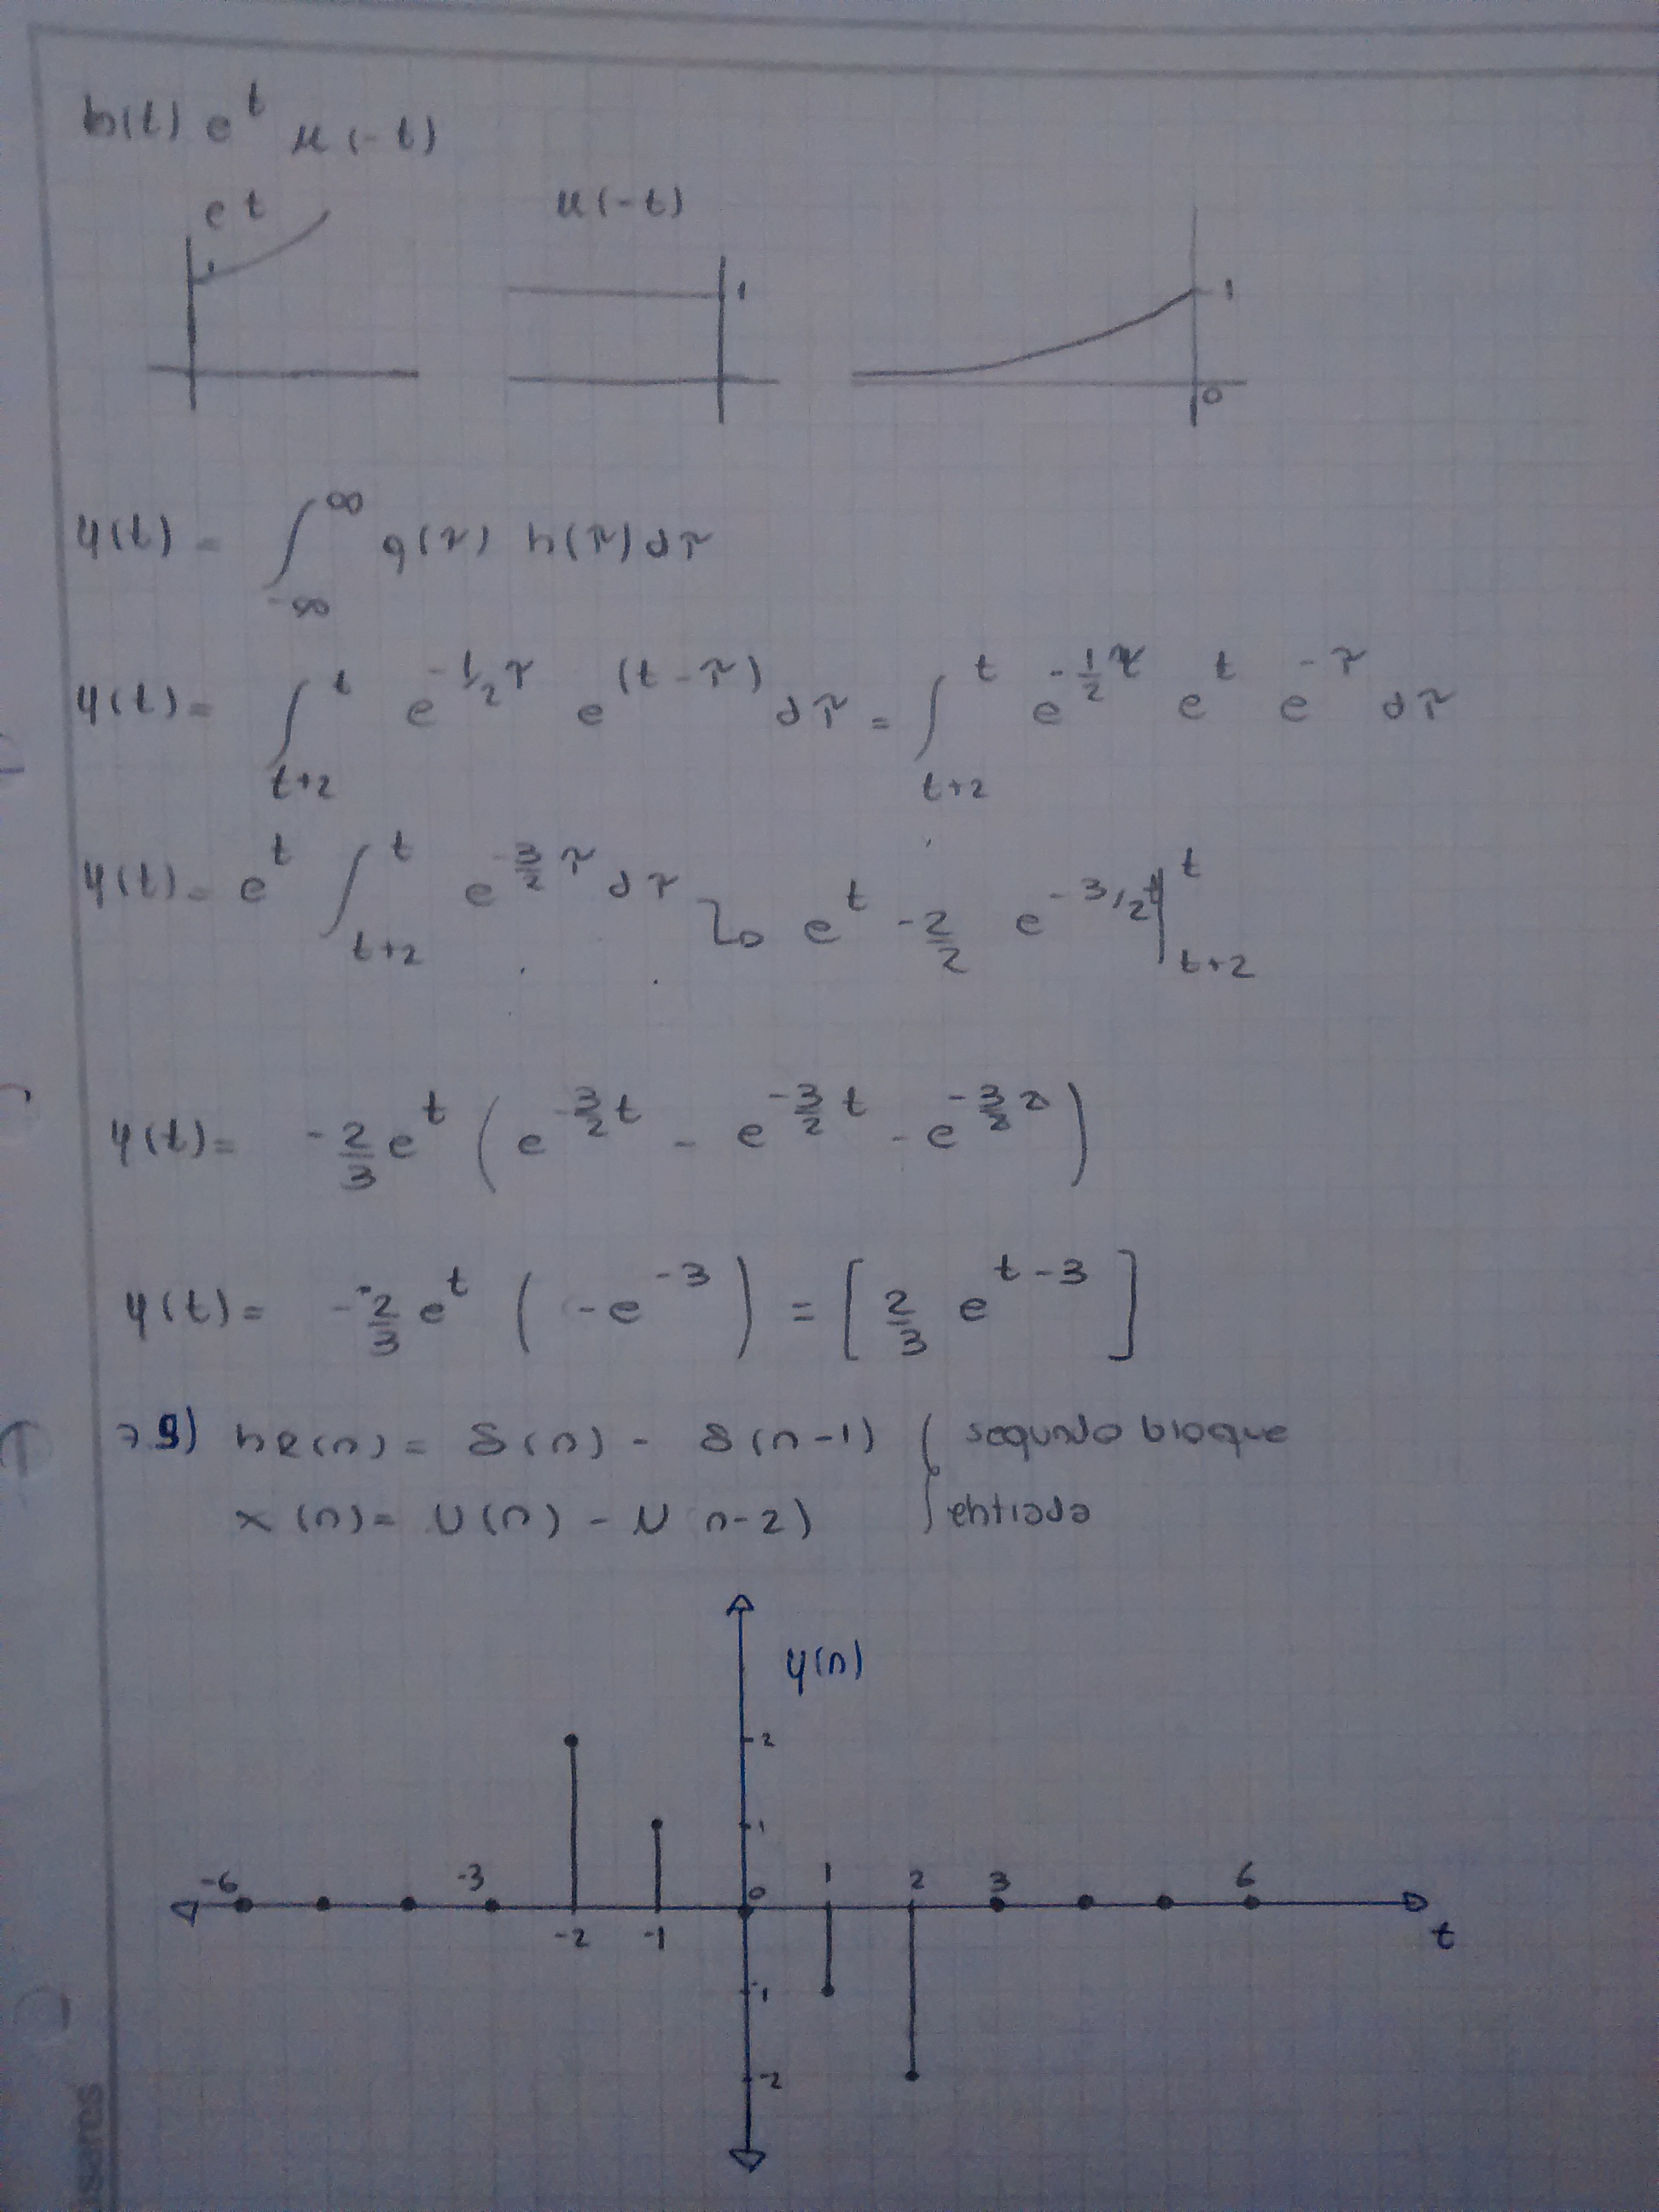 h(t) e^t μ(-t)
e^t μ(-t)
1 1 1
0
y(t) = ∫_{-∞}^{∞} g(τ) h(τ) dτ
y(t) = ∫_{t+2}^{t} e^{-1/2 τ} e^{(t-τ)} dτ = ∫_{t+2}^{t} e^{-1/2 τ} e^t e^{-τ} dτ
y(t) = e^t ∫_{t+2}^{t} e^{-3/2 τ} dτ → e^t -2/2 e^{-3/2 τ} |_{t+2}^{t}
y(t) = -2/3 e^t ( e^{-3/2 t} - e^{-3/2 t} - e^{-3/2 2} )
y(t) = -2/3 e^t ( -e^{-3} ) = [ 2/3 e^{t-3} ]
9) h2(n) = δ(n) - δ(n-1) segundo bloque
x(n) = U(n) - U n-2) entrada
y(n)
2
1
-6 -3 0 1 2 3 6
-2 -1 t
-1
-2